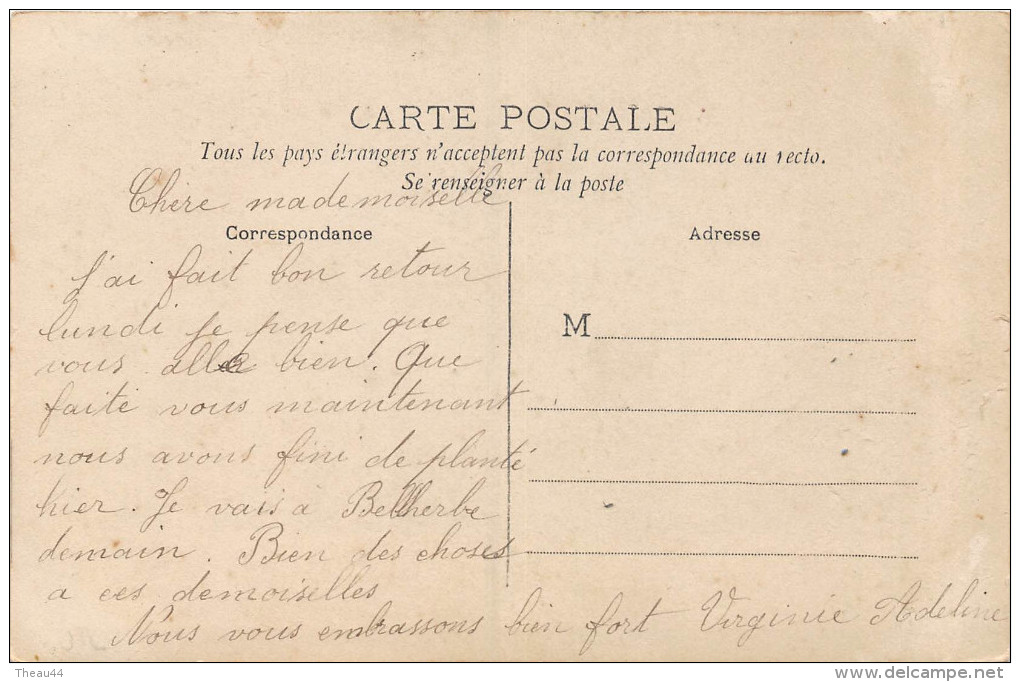 CARTE POSTALE
Tous les pays étrangers n'acceptent pas la correspondance au recto.
Se renseigner à la poste
Chère mademoiselle
Correspondance
Adresse
J'ai fait bon retour
lundi je pense que
vous aller bien. Que
faite vous maintenant
nous avons fini de planté
hier. Je vais à Bellherbe
demain. Bien des choses
a ces demoiselles
Nous vous embrassons bien fort Virginie Adeline
M
Theau44
delcampe.net